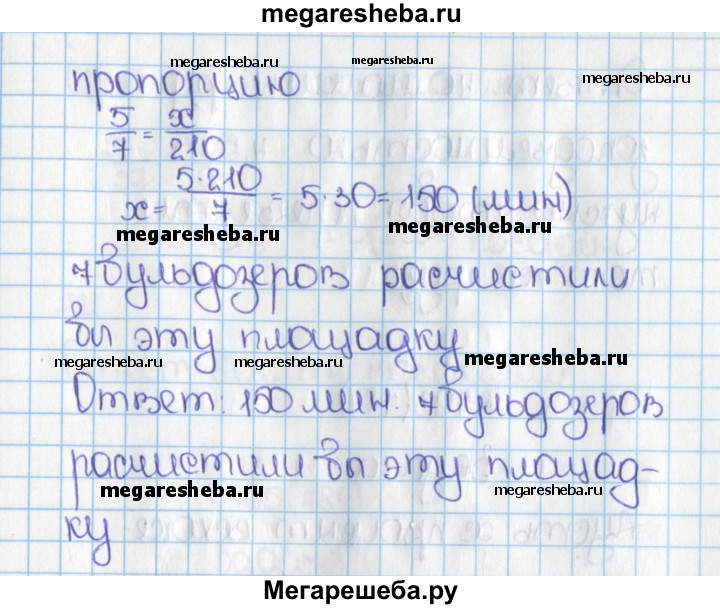 megaresheba.ru
megaresheba.ru megaresheba.ru megaresheba.ru
пропорцию
5/7 = x/210
x = 5·210/7 = 5·30 = 150 (мин)
megaresheba.ru megaresheba.ru
7 бульдозеров расчистили
бы эту площадку
megaresheba.ru megaresheba.ru megaresheba.ru
Ответ: 150 мин. 7 бульдозеров
расчистили бы эту площад-
megaresheba.ru megaresheba.ru
ку
Мегарешеба.ру